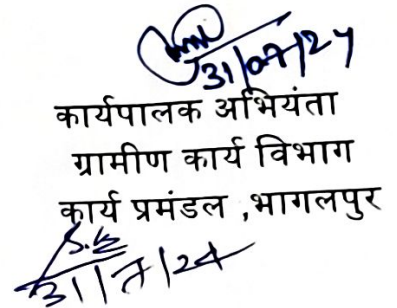 31/07/24
कार्यपालक अभियंता
ग्रामीण कार्य विभाग
कार्य प्रमंडल ,भागलपुर
31/7/24